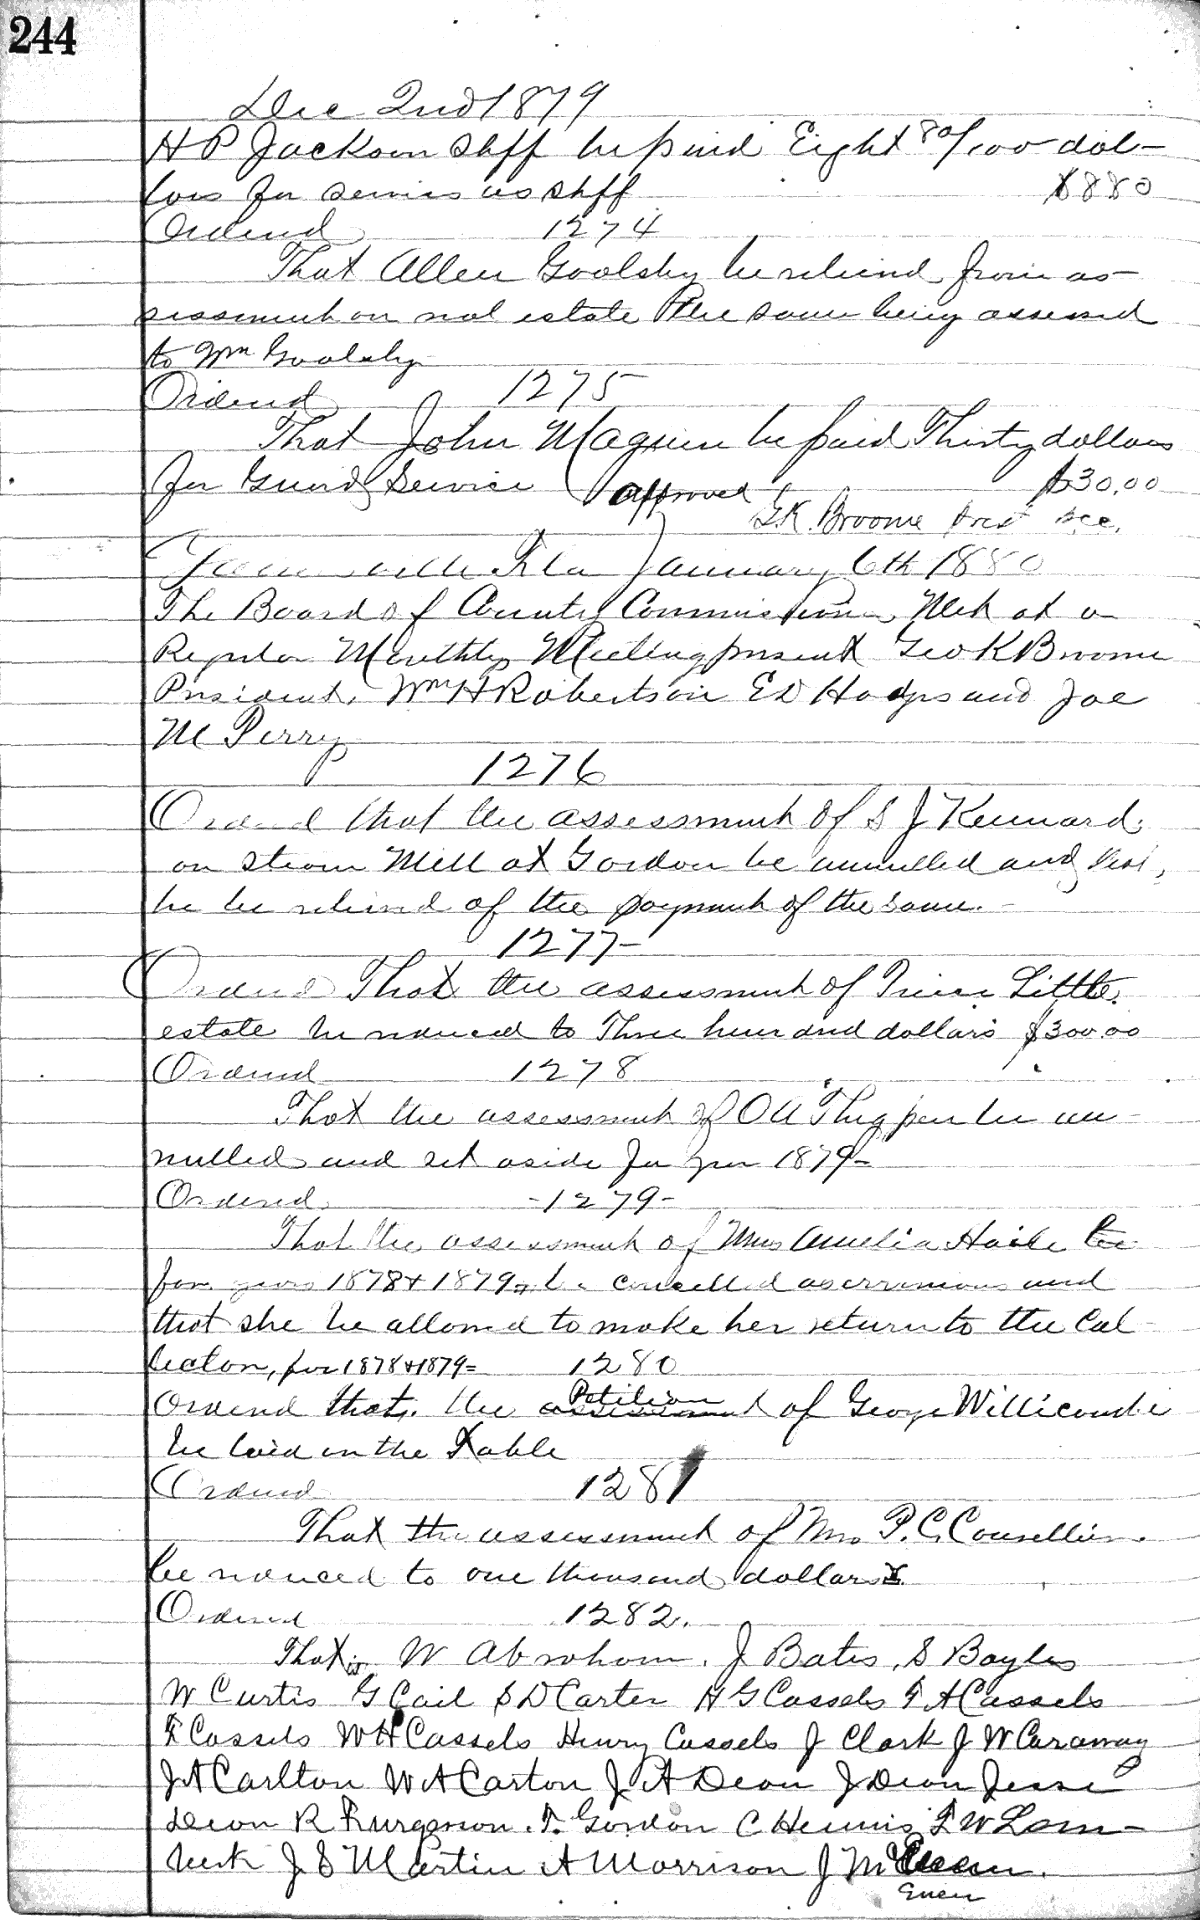 244
Dec 2nd 1879
H P Jackson Shff be paid Eight 80/100 dol-
lars for servies as Shff $8 80
Ordered 1274
That Allen Goolsby be relieved from as-
sessment on real estate the same being assessed
to Wm Goolsby
Ordered 1275
That John Maguire be paid Thirty dollars
for Guard Service $30.00
approved
G.K. Broome Prest
Gainesville Fla January 6th 1880
The Board of County Commissioners Met at a
Regular Monthly Meeting present Geo K Broome
President, Wm H Robertson E D Hodges and Joe
M Perry
1276
Ordered that the assessment of S J Kennard
on Steam Mill at Gordon be annulled and that
he be relieved of the payment of the same.
1277-
Ordered That the assessment of Little
estate be reduced to Three hundred dollars $300.00
Ordered 1278
That the assessment of O A Thigpen be an-
nulled and set aside for year 1879-
Ordered -1279-
That the assessment of Mrs Amelia Haile
for years 1878 & 1879 be cancelled as erronious and
that she be allowed to make her return to the Col-
lector, for 1878 & 1879= 1280
Petition
Ordered that, the assessment of George Willicombe
be laid on the Table
Ordered 1281
That the assessment of Mrs P. C. Consellier.
be reduced to one thousand dollars
Ordered 1282.
That W Abraham. J Bates, S Bayles
W Curtis G Cail S D Carter H G Cassels F A Cassels
F Cassels W H Cassels Henry Cassels J Clark J W Caraway
J A Carlton W A Carton J A Dean J Dean Jesse
Dean R Furgerson. F. Gordon C Hennis F W Lam-
beck J S Martin A Morrison J McEuen.
Euen